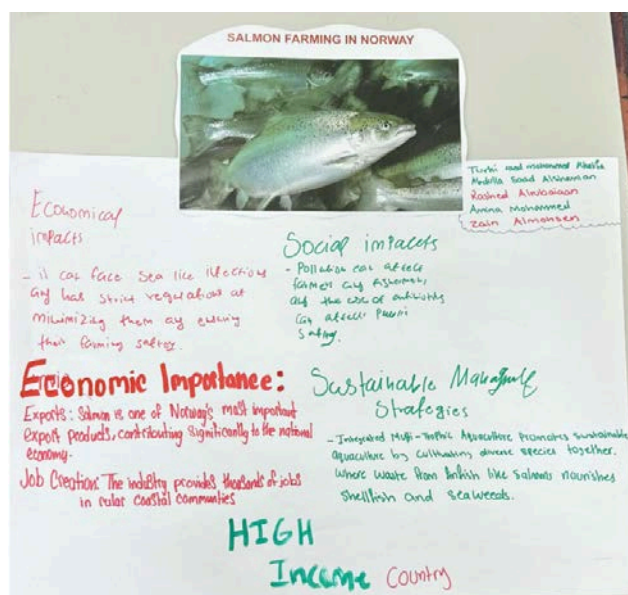 SALMON FARMING IN NORWAY
and mohammed
Saad
Rashed
Amna Mohammed
Zain Almohsen
Economical
impacts
- it can face sea lice infections
and has strict regulations at
minimizing them and
their farming safety.
Social impacts
- Pollution can affect
farmers and fishermen,
and the use of antibiotics
can affect Public
Safety.
Economic Importance:
Exports: Salmon is one of Norway's most important
export products, contributing significantly to the national
economy.
Job Creation: The industry provides thousands of jobs
in rular coastal communities
Sustainable
Strategies
- Integrated Multi-Trophic Aquaculture promotes sustainable
aquaculture by cultivating diverse species together.
Where waste from finfish like salmons nourishes
shellfish and seaweeds.
HIGH
Income Country